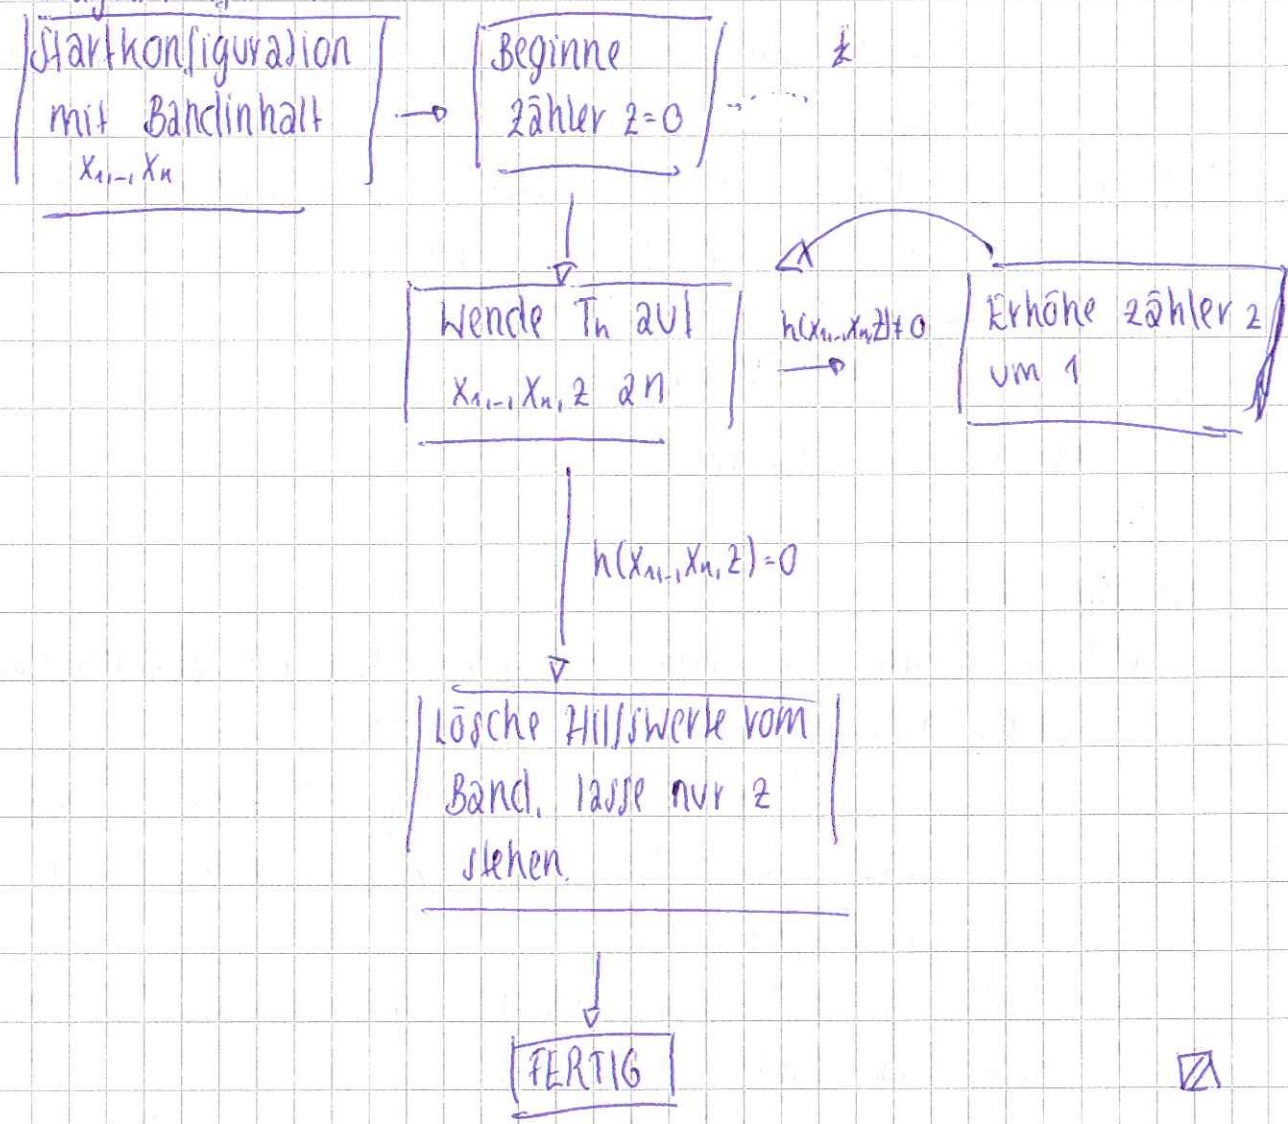 Startkonfiguration
mit Bandinhalt
x₁,...,xₙ
Beginne
Zähler z=0
Wende Tₕ auf
x₁,...,xₙ, z an
h(x₁,...,xₙ,z)≠0
Erhöhe Zähler z
um 1
h(x₁,...,xₙ,z)=0
Lösche Hilfswerte vom
Band, lasse nur z
stehen.
FERTIG